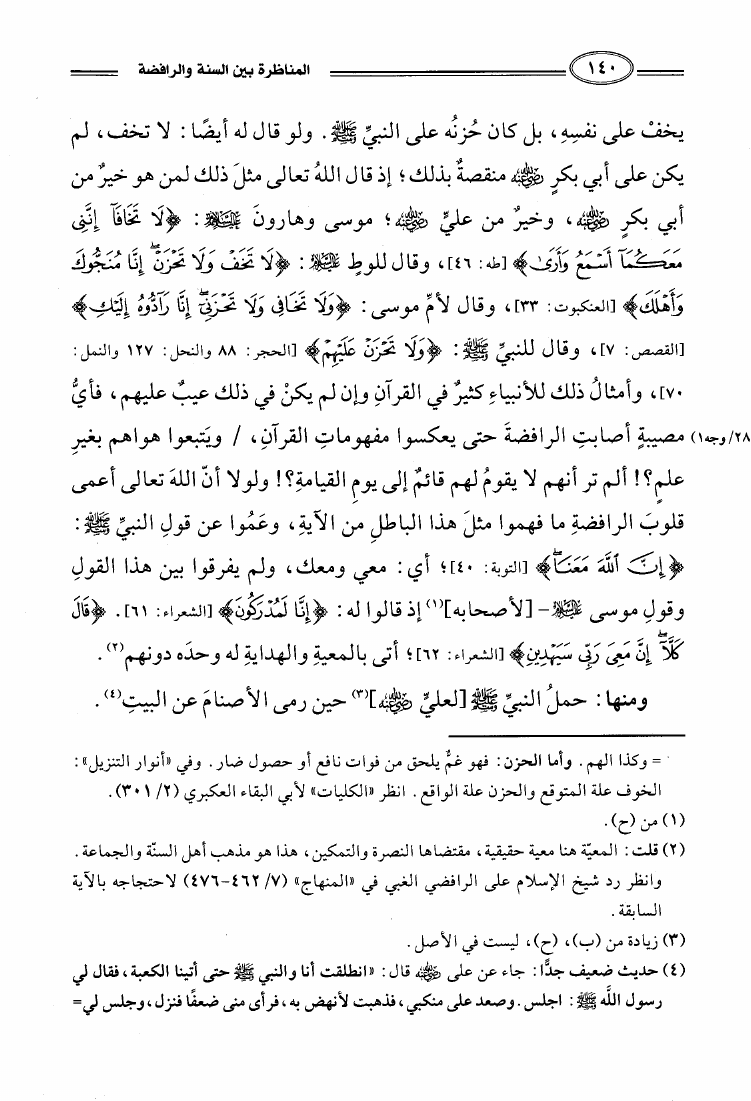 ١٤٠ المناظرة بين السنة والرافضة
يخفْ على نفسِهِ، بل كان حُزنُه على النبيِّ ﷺ. ولو قال له أيضًا: لا تخف، لم
يكن على أبي بكرٍ رضي الله عنه منقصةٌ بذلك؛ إذ قال اللهُ تعالى مثلَ ذلك لمن هو خيرٌ من
أبي بكرٍ رضي الله عنه، وخيرٌ من عليٍّ رضي الله عنه؛ موسى وهارونَ عليهما السلام: ﴿لَا تَخَافَآ إِنَّنِى
مَعَكُمَآ أَسْمَعُ وَأَرَىٰ﴾ [طه: ٤٦]، وقال للوطٍ عليه السلام: ﴿لَا تَخَفْ وَلَا تَحْزَنْ ۖ إِنَّا مُنَجُّوكَ
وَأَهْلَكَ﴾ [العنكبوت: ٣٣]، وقال لأمِّ موسى: ﴿وَلَا تَخَافِى وَلَا تَحْزَنِىٓ ۖ إِنَّا رَآدُّوهُ إِلَيْكِ﴾
[القصص: ٧]، وقال للنبيِّ ﷺ: ﴿وَلَا تَحْزَنْ عَلَيْهِمْ﴾ [الحجر: ٨٨ والنحل: ١٢٧ والنمل:
٧٠]، وأمثالُ ذلك للأنبياءِ كثيرٌ في القرآنِ وإن لم يكنْ في ذلك عيبٌ عليهم، فأيُّ
٢٨/وجه١) مصيبةٍ أصابتِ الرافضةَ حتى يعكسوا مفهوماتِ القرآنِ، / ويَتبعوا هواهم بغيرِ
علمٍ؟! ألم تر أنهم لا يقومُ لهم قائمٌ إلى يومِ القيامةِ؟! ولولا أنّ اللهَ تعالى أعمى
قلوبَ الرافضةِ ما فهموا مثلَ هذا الباطلِ من الآيةِ، وعَمُوا عن قولِ النبيِّ ﷺ:
﴿إِنَّ ٱللَّهَ مَعَنَا ۖ﴾ [التوبة: ٤٠]؛ أي: معي ومعك، ولم يفرقوا بين هذا القولِ
وقولِ موسى عليه السلام - [لأصحابه](١) إذ قالوا له: ﴿إِنَّا لَمُدْرَكُونَ﴾ [الشعراء: ٦١]. ﴿قَالَ
كَلَّآ ۖ إِنَّ مَعِىَ رَبِّى سَيَهْدِينِ﴾ [الشعراء: ٦٢]؛ أتى بالمعيةِ والهدايةِ له وحدَه دونهم(٢).
ومنها: حملُ النبيِّ ﷺ [لعليٍّ رضي الله عنه](٣) حين رمى الأصنامَ عن البيتِ(٤).
= وكذا الهم. وأما الحزن: فهو غمٌّ يلحق من فوات نافع أو حصول ضار. وفي «أنوار التنزيل»:
الخوف علة المتوقع والحزن علة الواقع. انظر «الكليات» لأبي البقاء العكبري (٢/ ٣٠١).
(١) من (ح).
(٢) قلت: المعيّة هنا معية حقيقية، مقتضاها النصرة والتمكين، هذا هو مذهب أهل السنّة والجماعة.
وانظر رد شيخ الإسلام على الرافضي الغبي في «المنهاج» (٧/ ٤٦٢-٤٧٦) لاحتجاجه بالآية
السابقة.
(٣) زيادة من (ب)، (ح)، ليست في الأصل.
(٤) حديث ضعيف جدًّا: جاء عن على رضي الله عنه قال: «انطلقت أنا والنبي ﷺ حتى أتينا الكعبة، فقال لي
رسول اللَّه ﷺ: اجلس. وصعد على منكبي، فذهبت لأنهض به، فرأى منى ضعفًا فنزل، وجلس لي=